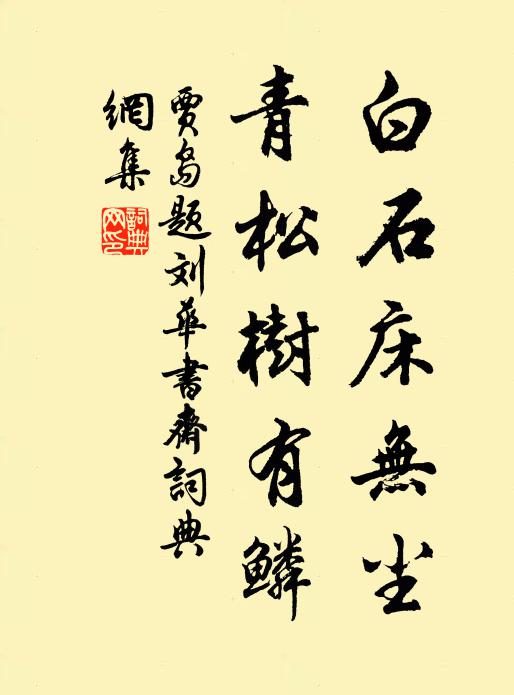 白石床無尘
青松樹有鱗
賈岛题刘華書齋詞典
網集
詞典
网印